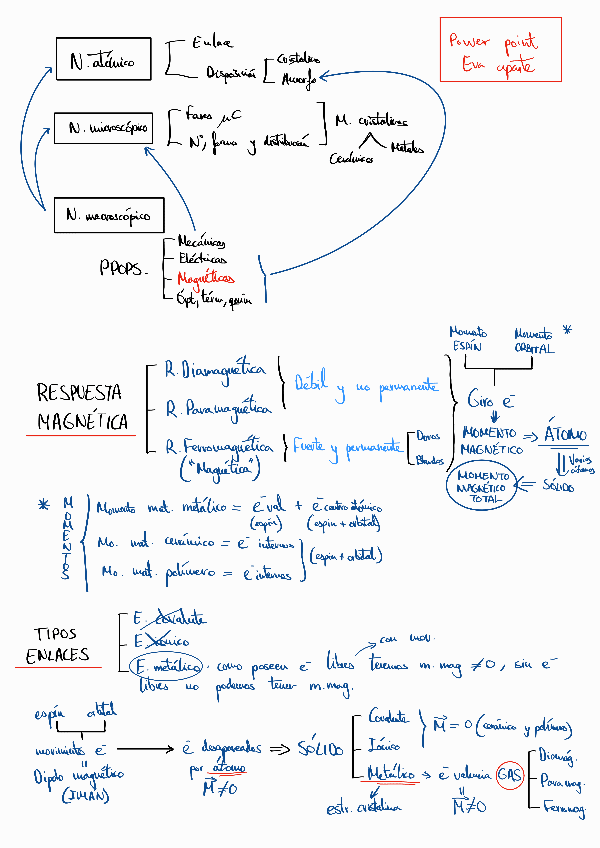 Power point
Eva aparte
N. atómico
Enlace
Disposición
Cristalino
Amorfo
N. microscópico
Fases µC
Nº, forma y distribución
M. cristalinos
Cerámicos
Metales
N. macroscópico
PPOPS.
Mecánicas
Eléctricas
Magnéticas
Ópt, térm, quím
RESPUESTA
MAGNÉTICA
R. Diamagnética
R. Paramagnética
Débil y no permanente
R. Ferromagnética
("Magnética")
Fuerte y permanente
Duros
Blandos
Momento
ESPÍN
Momento
ORBITAL
*
Giro e-
MOMENTO
MAGNÉTICO
⇒ ÁTOMO
Varios
átomos
SÓLIDO
MOMENTO
MAGNÉTICO
TOTAL
* MOMENTOS
Momento mat. metálico = e- val + e- centro atómico
(espín) (espín + orbital)
Mo. mat. cerámico = e- internos
Mo. mat. polímero = e- internos
(espín + orbital)
TIPOS
ENLACES
E. covalente
E. iónico
E. metálico. como poseen e- libres tenemos m.mag ≠ 0, sin e-
con mov.
libres no podemos tener m.mag.
espín orbital
movimiento e-
Dipolo magnético
(IMÁN)
e- desapareados
por átomo
M ≠ 0
⇒ SÓLIDO
Covalente
Iónico
M = 0 (cerámico y polímero)
Metálico → e- valencia GAS
estr. cristalina
M ≠ 0
Diamag.
Paramag.
Ferromag.